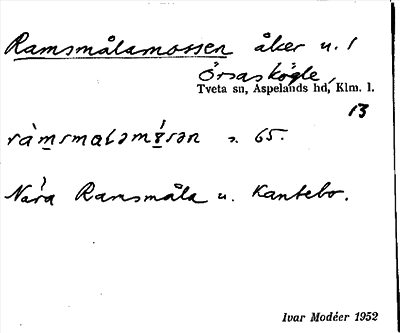 Ramsmålamossen åker u. 1
Örsaskögle,
Tveta sn, Aspelands hd, Klm. l.
13
s. 65.
Nära Ramsmåla u. Kantebo.
Ivar Modéer 1952